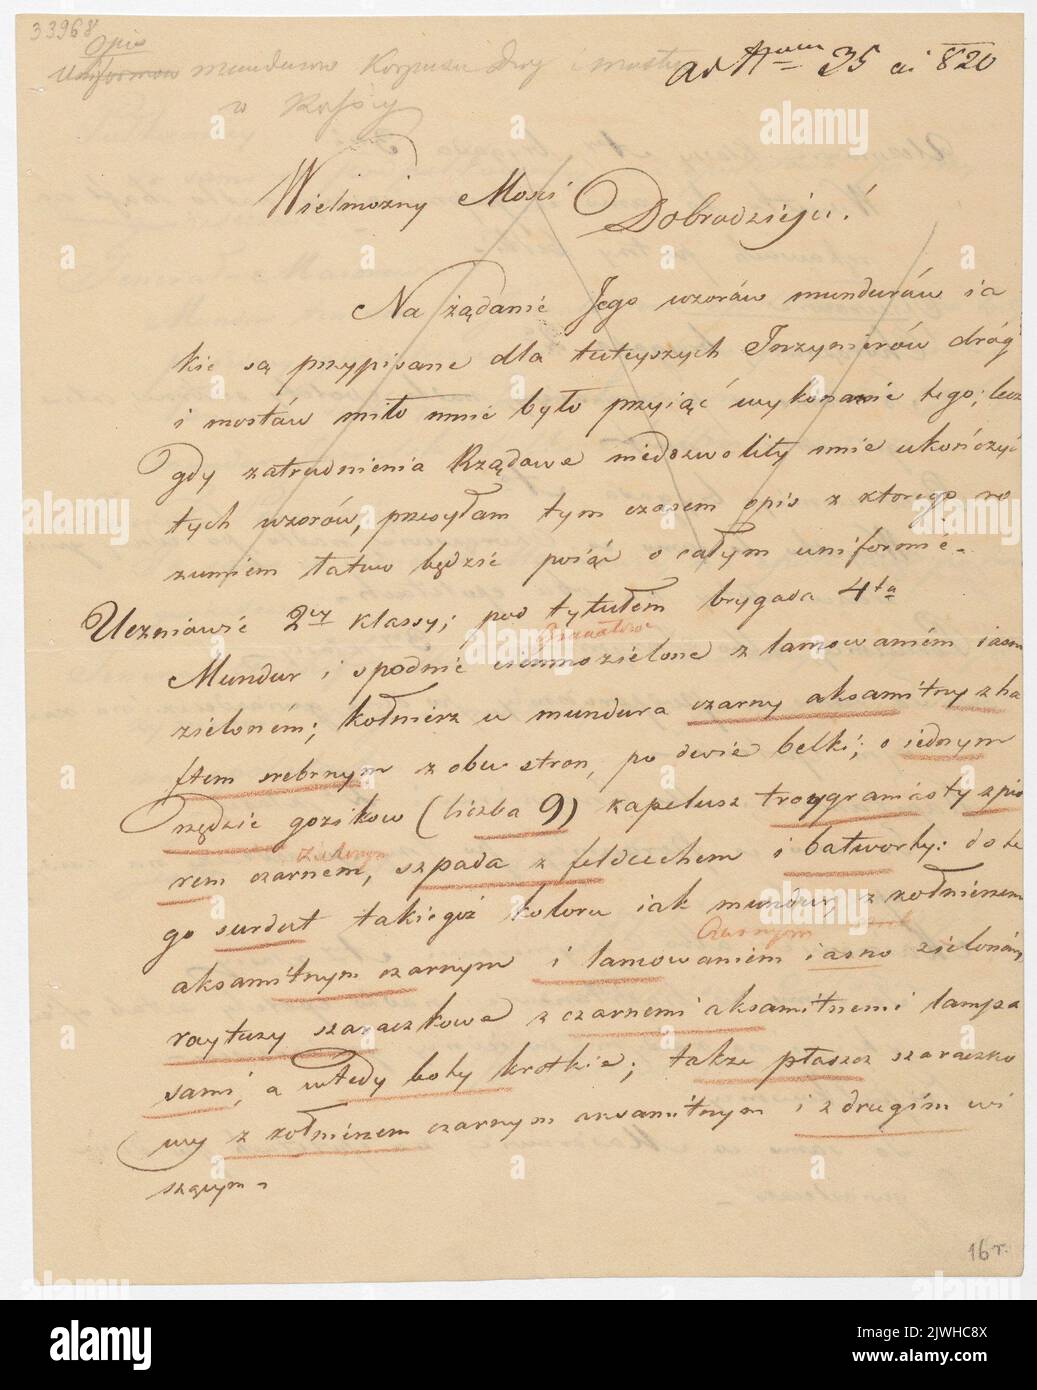 33968
Opis
Uniformow mundurow Korpusu Drog i mostow
w Rossyi
ad Num 35 ai 820
Wielmożny Mości Dobrodzieju!
Na żądanie Jego wzorów mundurów ia
kie są przypisane dla tuteyszych Inzynierów dróg
i mostów miło mnie było przyiąć wykonanie tego; lecz
gdy zatrudnienia Rządowe niedozwoliły mnie ukończyć
tych wzorów, przesyłam tym czasem opis z ktorego ro
zumiem łatwo będzie poiąć o całym uniformie.
Uczniowie 2ey klassy; pod tytułem brygada 4ta
Mundur i spodnie ciemnozielone z lamowaniem iasno
zielonem; kołnierz u mundura czarny aksamitny z ha
ftem srebrnym z obu stron, po dwie belki; o iednym
rzędzie gozikow (liczba 9) kapelusz troygraniasty z pio
zielonym
rem czarnem, szpada z feldcechem i botworty: do te
go surdut takiegoż koloru iak mundur, z kołnierzem
Czarnym
aksamitnym czarnym i lamowaniem iasno zielonem,
raytuzy szaraczkowe z czarnemi aksamitnemi lampa
sami; a wtedy boty krotkie; także płaszcz szaraczko
wy z kołnierzem czarnym aksamitnym i z drugim wi
szącym.
16r.
alamy
Image ID: 2JWHC8X
www.alamy.com